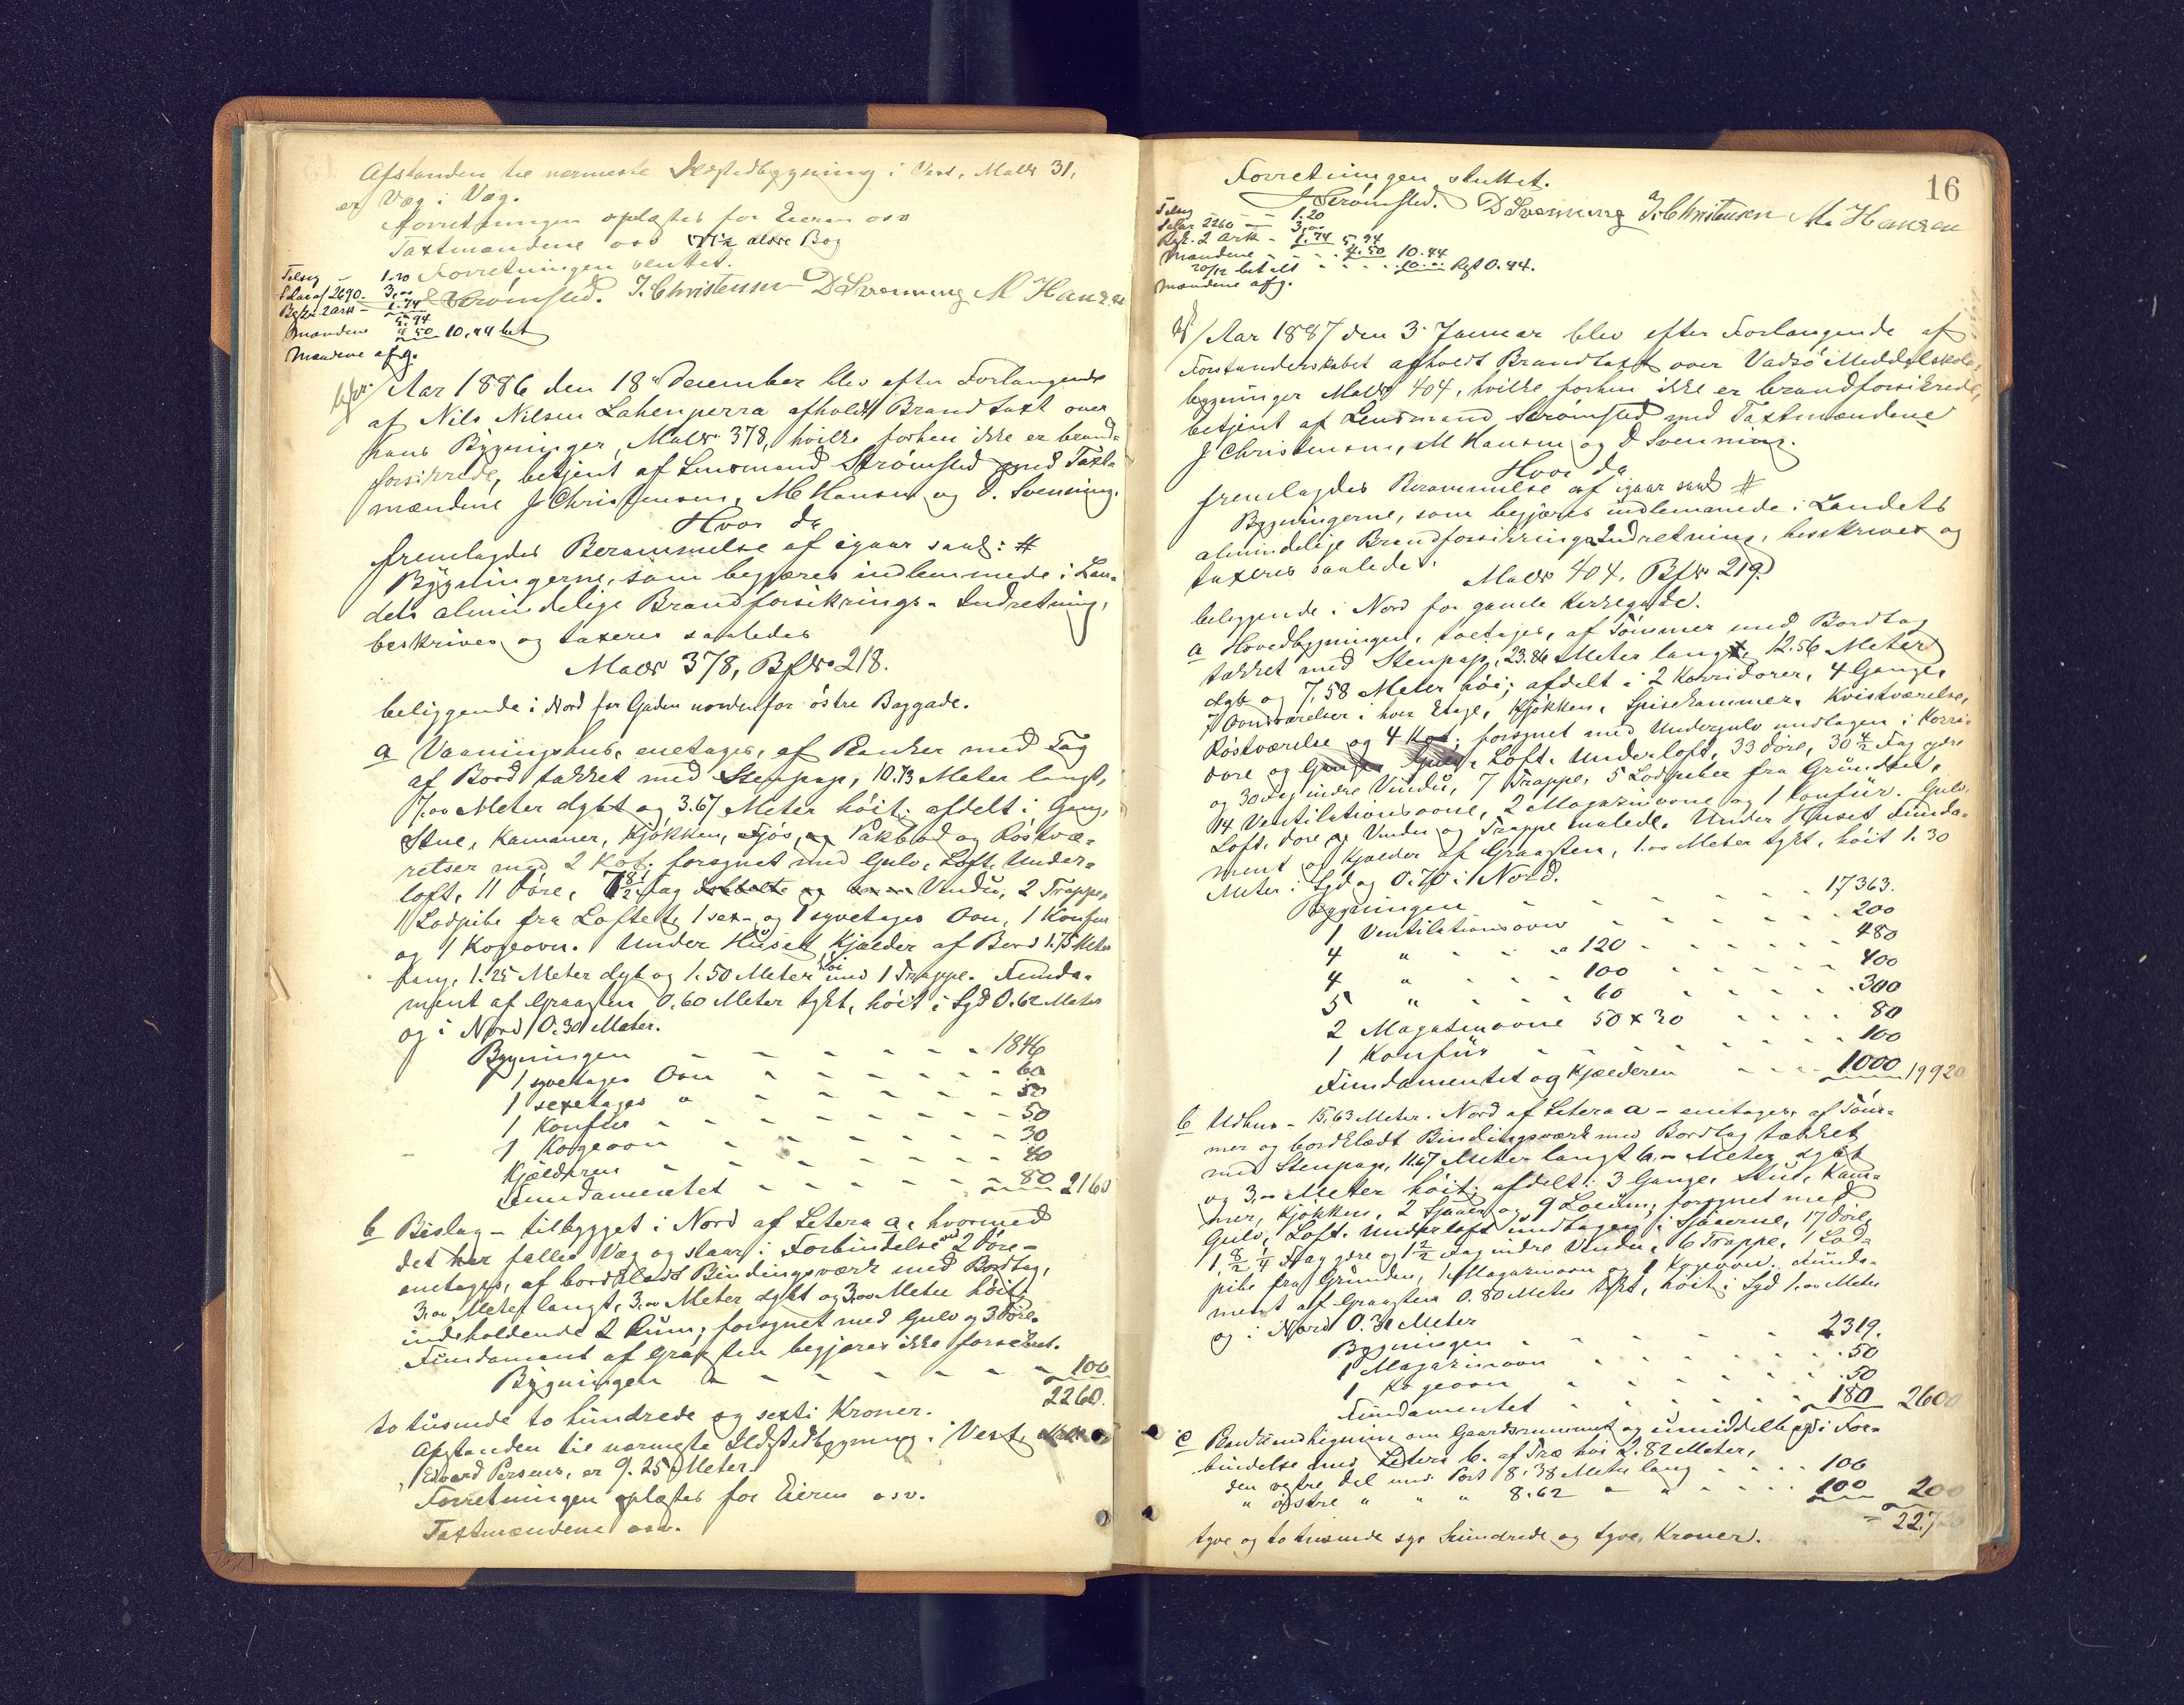 Afstanden til nermeste Ildstedbygning i Vest, Malls 31,
er Væg i Væg.
Forretningen oplæstes for Eieren osv
Taxtmændene osv aldre Bog
Forretningen sluttet.
Tilsig - 1.20
Salar af 2690. 3,00
Begfr. 2 Ark - 1.74
5.94
Mændene 4.50 10,44 bet
Mændene afg.
Strömsted. J. Christensen D Svenning M Hansen
Aar 1886 den 18 December blev efter Forlangende
af Nils Nilsen Lahenperra afholdt Brandtaxt over
hans Bygninger, Malls 378, hvilke forhen ikke er brand-
forsikrede, betjent af Lensmand Strömsted med Taxt-
mændene J Christensen, M Hansen og D. Svenning.
Hvor da
fremlagdes Berammelse af igaar saal: #
Bygningerne, som begjæres indlemmede i Lan-
dets almindelige Brandforsikrings-Indretning,
beskrives og taxeres saaledes
Malls 378, Bfls 218.
beliggende i Nord for Gaden nordenfor östre Baggade.
a Vaaningshus, enetages, af Planker med Tag
af Bord takket med Stenpap, 10.73 Meter langt,
7,00 Meter dybt og 3.67 Meter höit; afdelt i Gang,
Stue, Kammer, Kjökken, Fjös, og Pakbod og Röstvæ-
relser med 2 Kot; forsynet med Gulv, Loft, Under-
loft, 11 Döre, Fag Vindu, 2 Trappe,
1 Lodpibe fra Loftet, 1 sex- og 1 syvetages Ovn, 1 Konfur
og 1 Kogeovn. Under Huset Kjælder af Bord 1.75 Meter
lang, 1.25 Meter dyb og 1.50 Meter höi med 1 Trappe. Funda-
ment af Graasten 0.60 Meter tykt, höit i Syd 0.62 Meter
og i Nord 0.30 Meter.
Bygningen - - - - - - 1846
1 syvetages Ovn - - - - - - 60
1 sexetages " - - - - - - 50
1 Konfur - - - - - - 50
1 Kogeovn - - - - - - 30
Kjælderen - - - - - - 40
Fundamentet - - - - - - 80 2160
b Bislag - tilbygget i Nord af Litera a, hvormed
det har fælles Væg og staar i Forbindelse ved 2 Döre -
enetages, af bordklædt Bindingsværk med Bordtag,
3.00 Meter langt, 3.00 Meter dybt og 3.00 Meter höit,
indeholdende 2 Rum; forsynet med Gulv og 3 Döre.
Fundament af Graasten begjæres ikke forsikret.
Bygningen - - - - - - 100
2260.
to tusinde to hundrede og sexti Kroner.
Afstanden til nermeste Ildstedbygning i Vest,
Edvard Persens, er 9.25 Meter.
Forretningen oplæstes for Eieren osv.
Taxtmændene osv.
16
Forretningen sluttet.
Strömsted. D Svenning J. Christensen M. Hansen
Tilsig - - 1.20
Salar 2260 - 3,00
Begfr. 2 Ark - 1.74 5.94
Mændene - - - 4.50 10.44
20/12 betalt - - - 10.00 Rest 0.44.
Mændene afg.
Aar 1887 den 3 Januar blev efter Forlangende af
Forstanderskabet afholdt Brandtaxt over Vadsö Middelskole-
bygninger Malls 404, hvilke forhen ikke er brandforsikrede,
betjent af Lensmand Strömsted med Taxtmændene
J Christensen, M Hansen og D Svenning.
Hvor da
fremlagdes Berammelse af igaar saal #
Bygningerne, som begjæres indlemmede i Landets
almindelige Brandforsikrings-Indretning, beskrives og
taxeres saaledes:
Malls 404, Bfls 219.
beliggende i Nord for gamle Kirkegade.
a Hovedbygningen, toetages, af Tömmer med Bordtag
takket med Stenpap, 23.86 Meter lang, 12.56 Meter
dyb og 7,58 Meter höi; afdelt i 2 Korridorer, 4 Gange,
7 Ovnsværelser i hver Etage, Kjökken, Spisekammer, Kvistværelse,
Röstværelse og 4 Kot; forsynet med Undergulv undtagen i Korri-
dore og Gange Loft, Underloft, 33 Döre, 30 4/2 Fag ydre
og 30 Fag indre Vindu, 7 Trappe, 5 Lodpiber fra Grunden,
14 Ventilationsovne, 2 Magazinovne og 1 Konfür. Gulv,
Loft, Döre og Vindu og Trappe malede. Under Huset Funda-
ment og Kjælder af Graasten, 1.00 Meter tykt, höit 1.30
Meter i Syd og 0.70 i Nord.
Bygningen - - - - - - 17363.
1 Ventilationsovn - - - - - - 200
4 " - - a 120 - - - - - 480
4 " - - 100 - - - - - 400
5 " - - 60 - - - - - 300
2 Magazinovne 50 x 30 - - - - 80
1 Konfür - - - - - - 100
Fundamentet og Kjælderen - - - 1000 19920
b Udhus - 15,63 Meter i Nord af Litera a - enetages, af Töm-
mer og bordklædt Bindingsværk med Bordtag takket
med Stenpap, 11.67 Meter langt 6,00 Meter dybt
og 3,00 Meter höit; afdelt i 3 Gange, Stue, Kam-
mer, Kjökken, 2 Sjaaer og 9 Locum; forsynet med
Gulv, Loft, Underloft undtagen i Sjaaerne, 17 Döre,
1 8/2 1/4 Fag ydre og 1 2/2 Fag indre Vindu, 6 Trappe, 1 Lod-
pibe fra Grunden, 1 Magazinovn og 1 Kogeovn. Funda-
ment af Graasten 0.80 Meter tykt, höit i Syd 1.00 Meter
og i Nord 0.30 Meter
Bygningen - - - - - - 2319.
1 Magazinovn - - - - - - 50
1 Kogeovn - - - - - - 50
Fundamentet - - - - - - 180 2600
c Bordindhegning om Gaardsrummet og umiddelbart i For-
bindelse med Litera b. af Træ höi 2.82 Meter,
den vestre Del med Port 8.38 Meter lang - - - 100
" östre " " " 8.62 " - - - 100 200
- 22720
tyve og to tusinde syv hundrede og tyve Kroner.